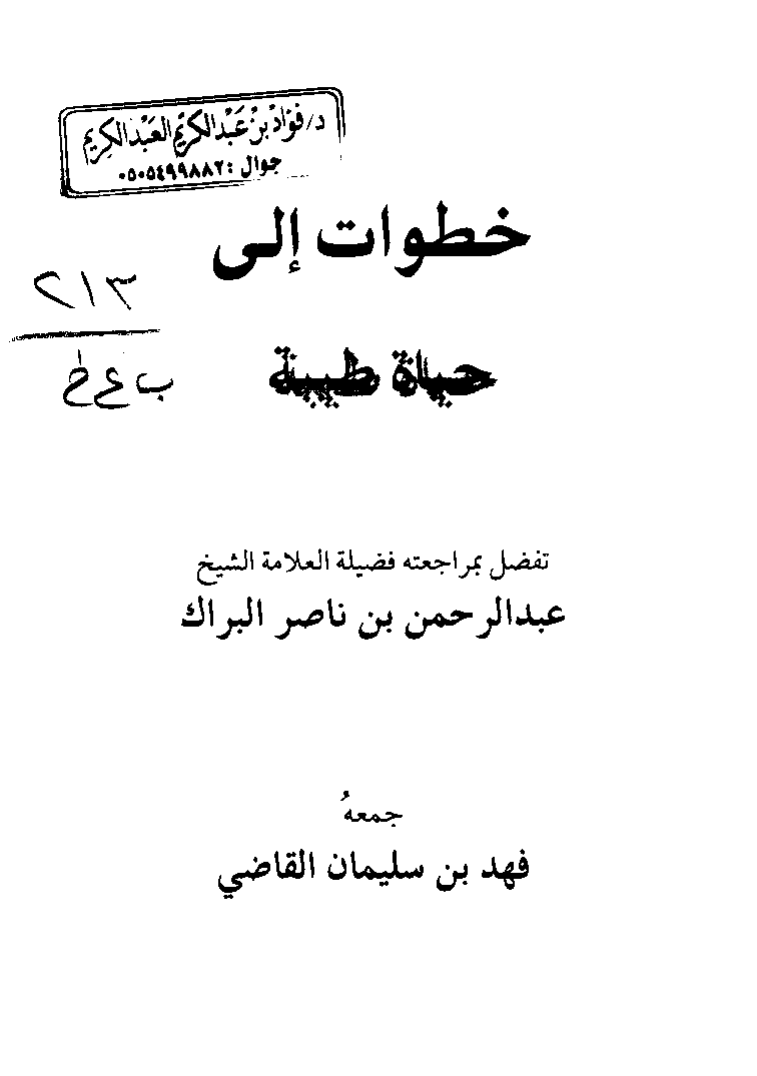 د/فؤاد بن عَبْد الكريم العَبْد الكريم
جوال : ٠٥٠٥٤٩٩٨٨٢
خطوات إلى
حياة طيبة
٢١٣
ب ع خ
تفضل بمراجعته فضيلة العلامة الشيخ
عبدالرحمن بن ناصر البراك
جمعهُ
فهد بن سليمان القاضي